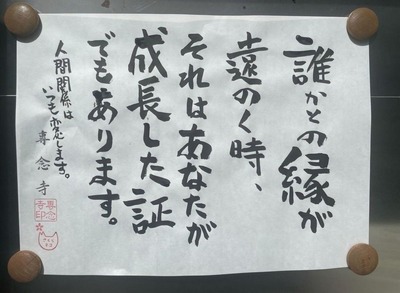 誰かとの縁が
遠のく時、
それはあなたが
成長した証
でもあります。
人間関係は
いつも変化します。
専念寺
専念
寺印